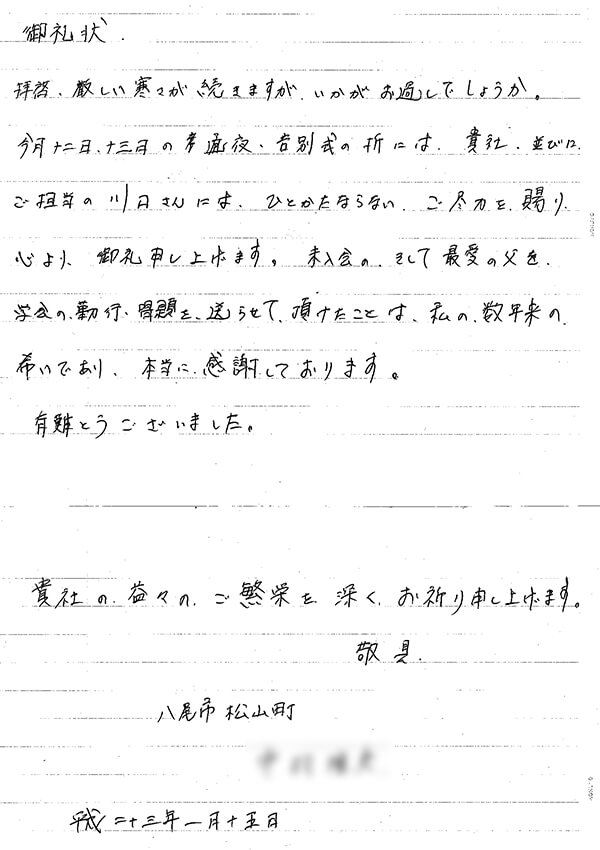 御礼状.
拝啓、厳しい寒さが続きますが、いかがお過しでしょうか。
今月十二日、十三日の 通夜、告別式の折には、貴社、並びに
ご担当の川口さんには、ひとかたならない、ご尽力を、賜り、
心より、御礼申し上げます。未入会の、そして最愛の父を、
学会の、勤行、題を、送らせて、頂けたことは、私の、数年来の、
希いであり、本当に、感謝しております。
有難とうございました。
貴社の、益々の、ご繁栄を、深く、お祈り申し上げます。
敬具.
八尾市 松山町
平成二十三年一月十五日